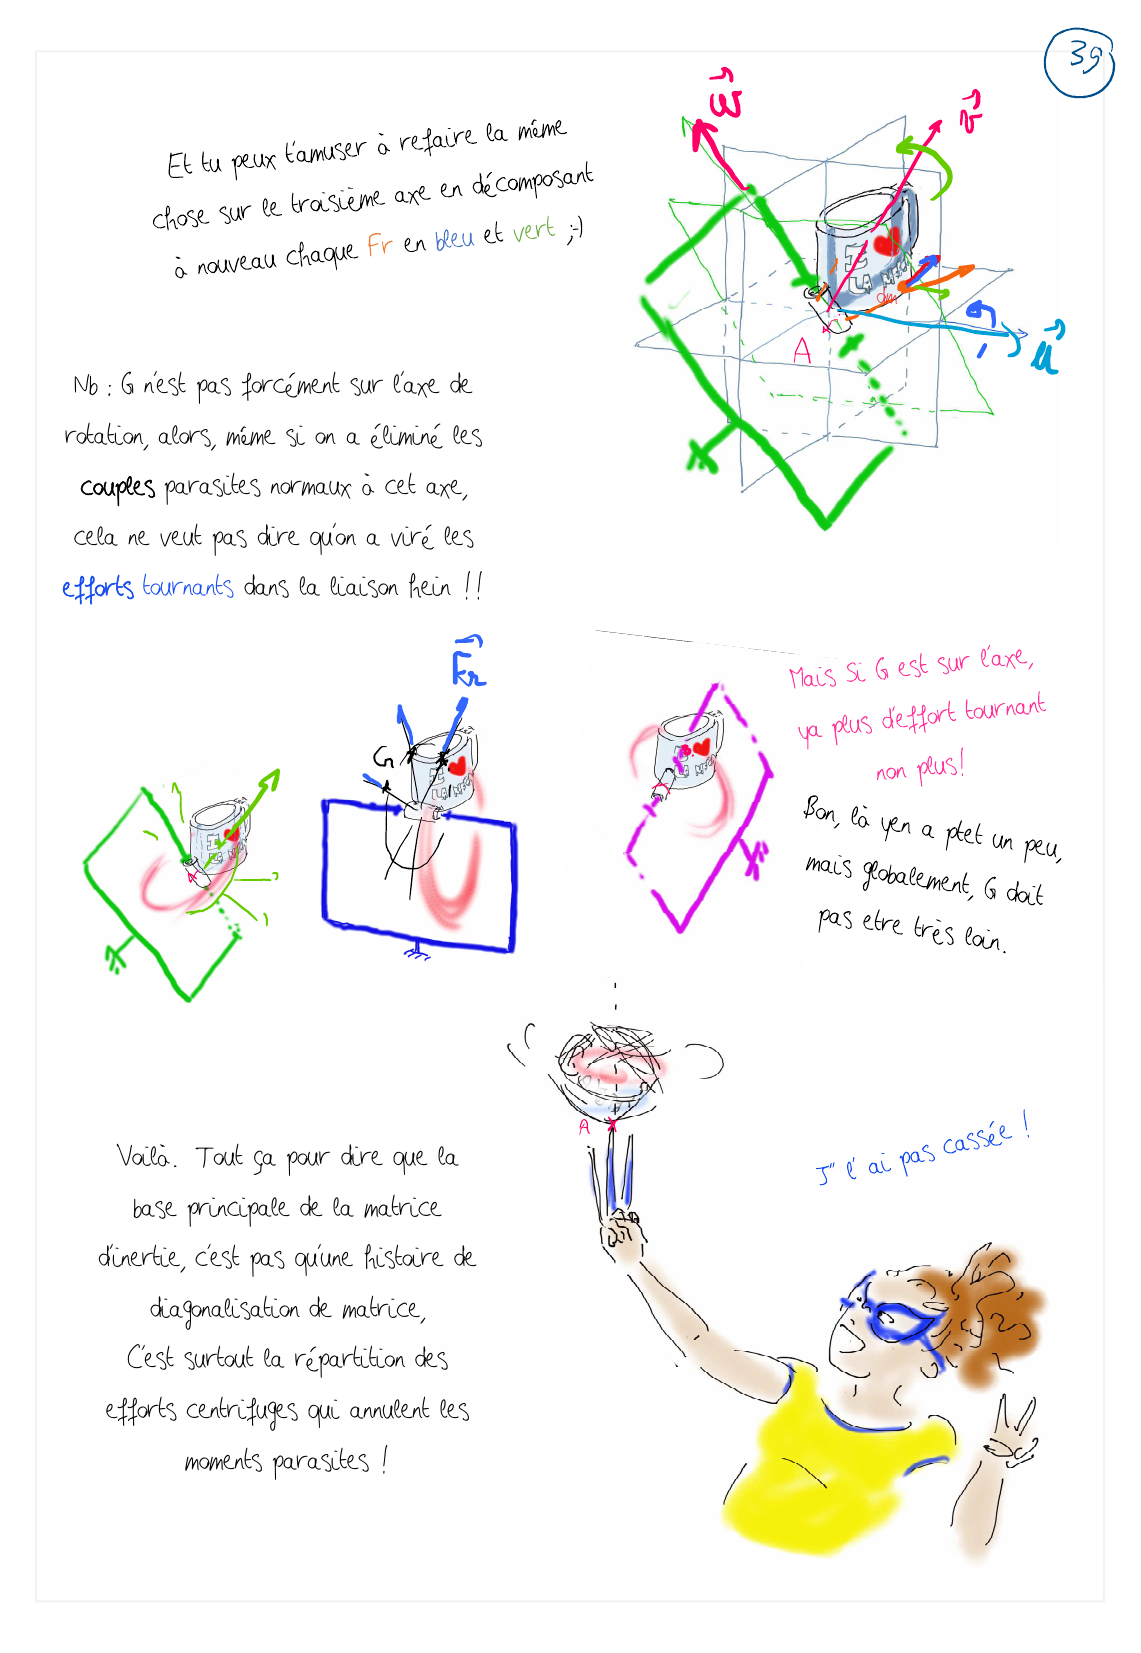 39
Et tu peux t'amuser à refaire la même
chose sur le troisième axe en décomposant
à nouveau chaque Fr en bleu et vert ;-)
ω
v
dm
A
u
Nb : G n'est pas forcément sur l'axe de
rotation, alors, même si on a éliminé les
couples parasites normaux à cet axe,
cela ne veut pas dire qu'on a viré les
efforts tournants dans la liaison hein !!
Fr
G
Mais si G est sur l'axe,
ya plus d'effort tournant
non plus!
Bon, là yen a ptet un peu,
mais globalement, G doit
pas etre très loin.
A
J' l' ai pas cassée !
Voilà. Tout ça pour dire que la
base principale de la matrice
d'inertie, c'est pas qu'une histoire de
diagonalisation de matrice,
C'est surtout la répartition des
efforts centrifuges qui annulent les
moments parasites !